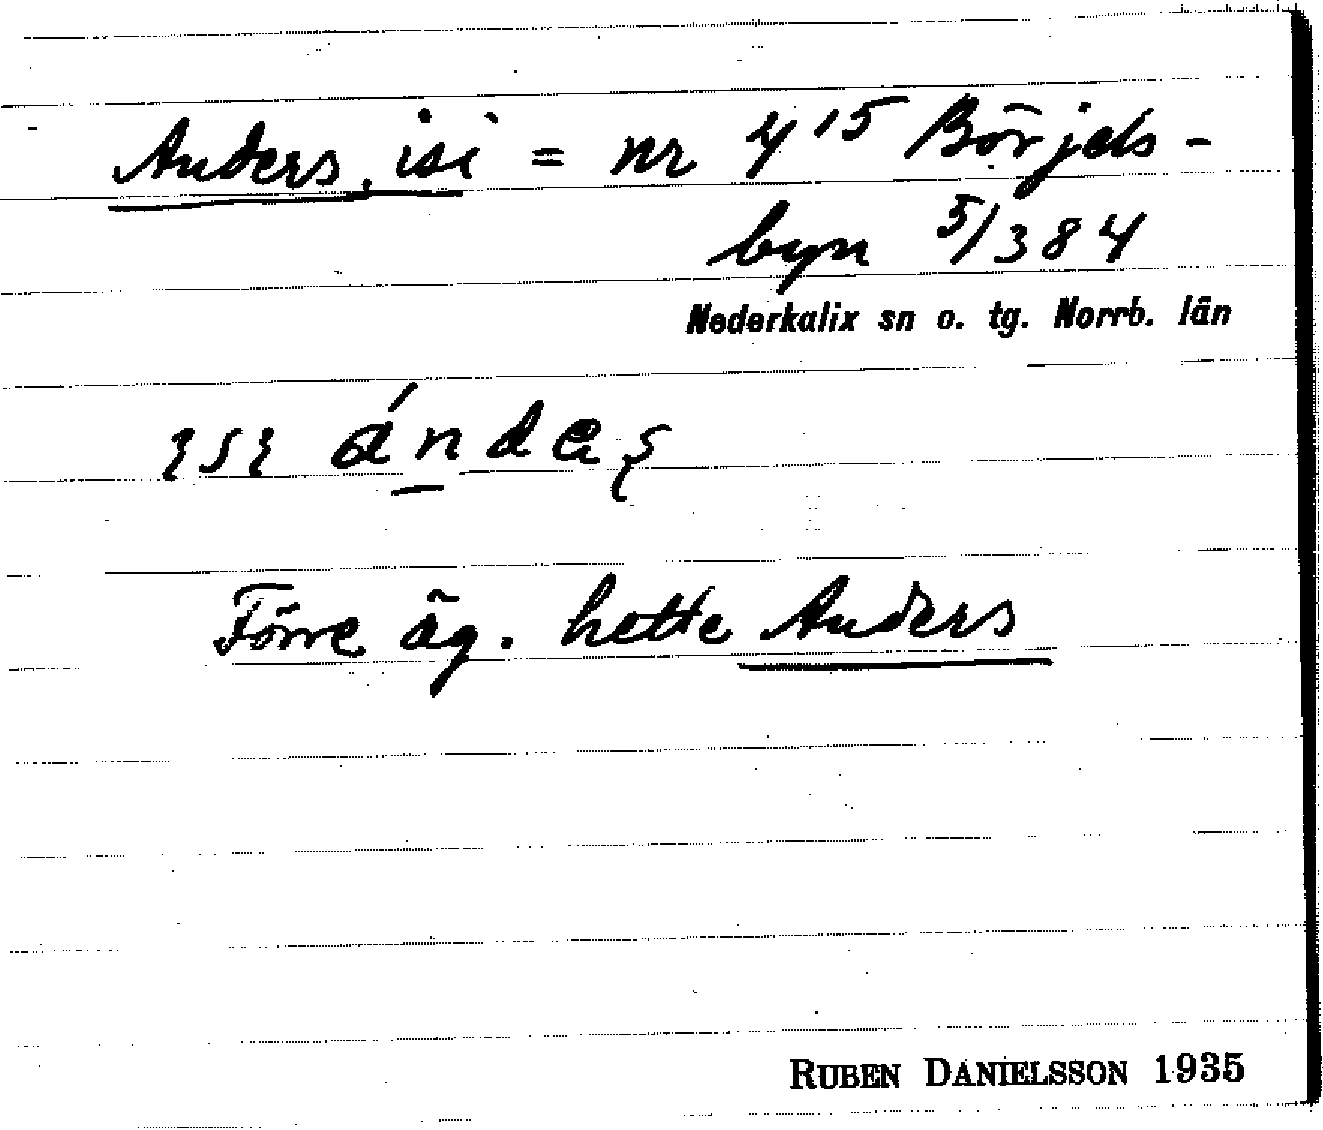 Anders, isi = nr 4¹⁵ Börjels-
byn 5/384
Nederkalix sn o. tg. Norrb. län
ándaʂ
Förre äg. hette Anders
RUBEN DANIELSSON 1935